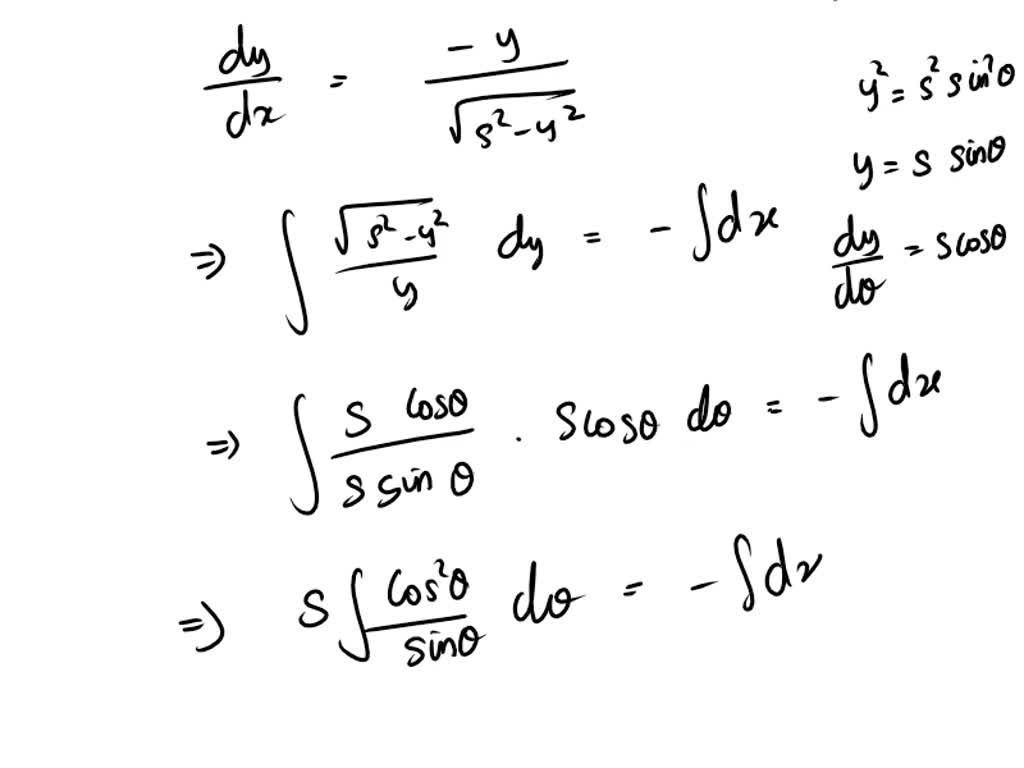 dy/dx = -y/√(s²-y²)
y² = s² sin²θ
y = s sinθ
⇒ ∫ √(s²-y²)/y dy = -∫dx
dy/dθ = s cosθ
⇒ ∫ s cosθ/s sin θ . s cosθ dθ = -∫dx
⇒ s∫ cos²θ/sinθ dθ = -∫dx